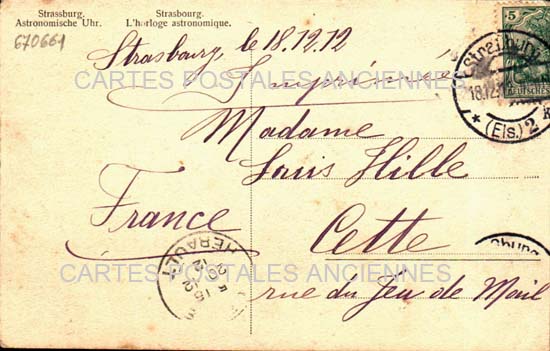 Strassburg.
Astronomische Uhr.
Strasbourg.
L'horloge astronomique.
670661
Strasbourg, le 18.12.12
Imprimée
CARTES POSTALES ANCIENNES
Madame
Louis Hille
France
Cette
rue du Jeu de Mail
CARTES POSTALES ANCIENNES
5
Strassburg
18.12
* (Els.) 2
HERAULT